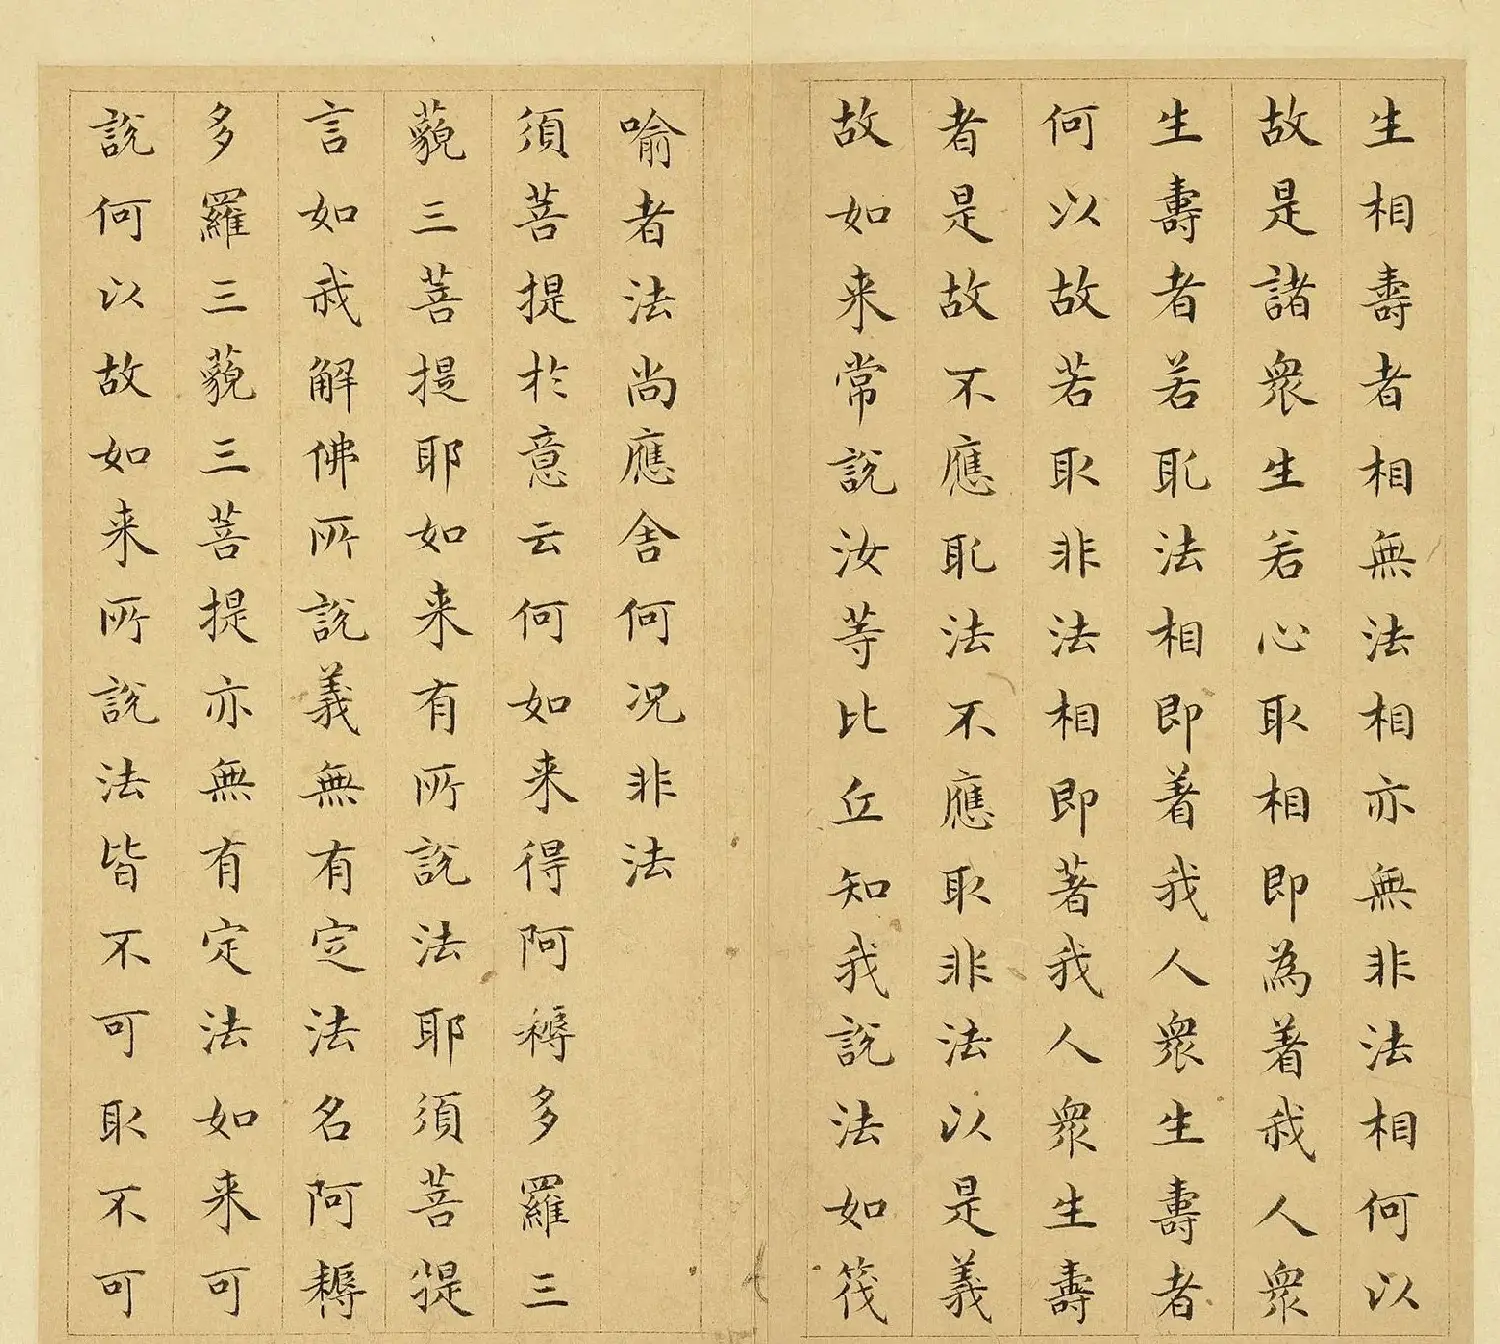 生相壽者相無法相亦無非法相何以
故是諸衆生若心取相即為著我人衆
生壽者若取法相即著我人衆生壽者
何以故若取非法相即著我人衆生壽
者是故不應取法不應取非法以是義
故如来常說汝等比丘知我說法如筏
喻者法尚應舍何况非法
須菩提於意云何如来得阿耨多羅三
藐三菩提耶如来有所說法耶須菩提
言如我解佛所說義無有定法名阿耨
多羅三藐三菩提亦無有定法如来可
說何以故如来所說法皆不可取不可